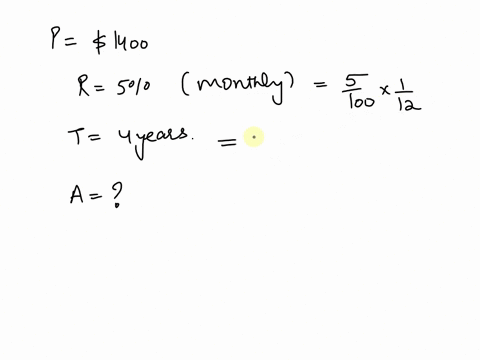 P = $1400
R = 5% (monthly) = 5/100 × 1/12
T = 4 years. =
A = ?